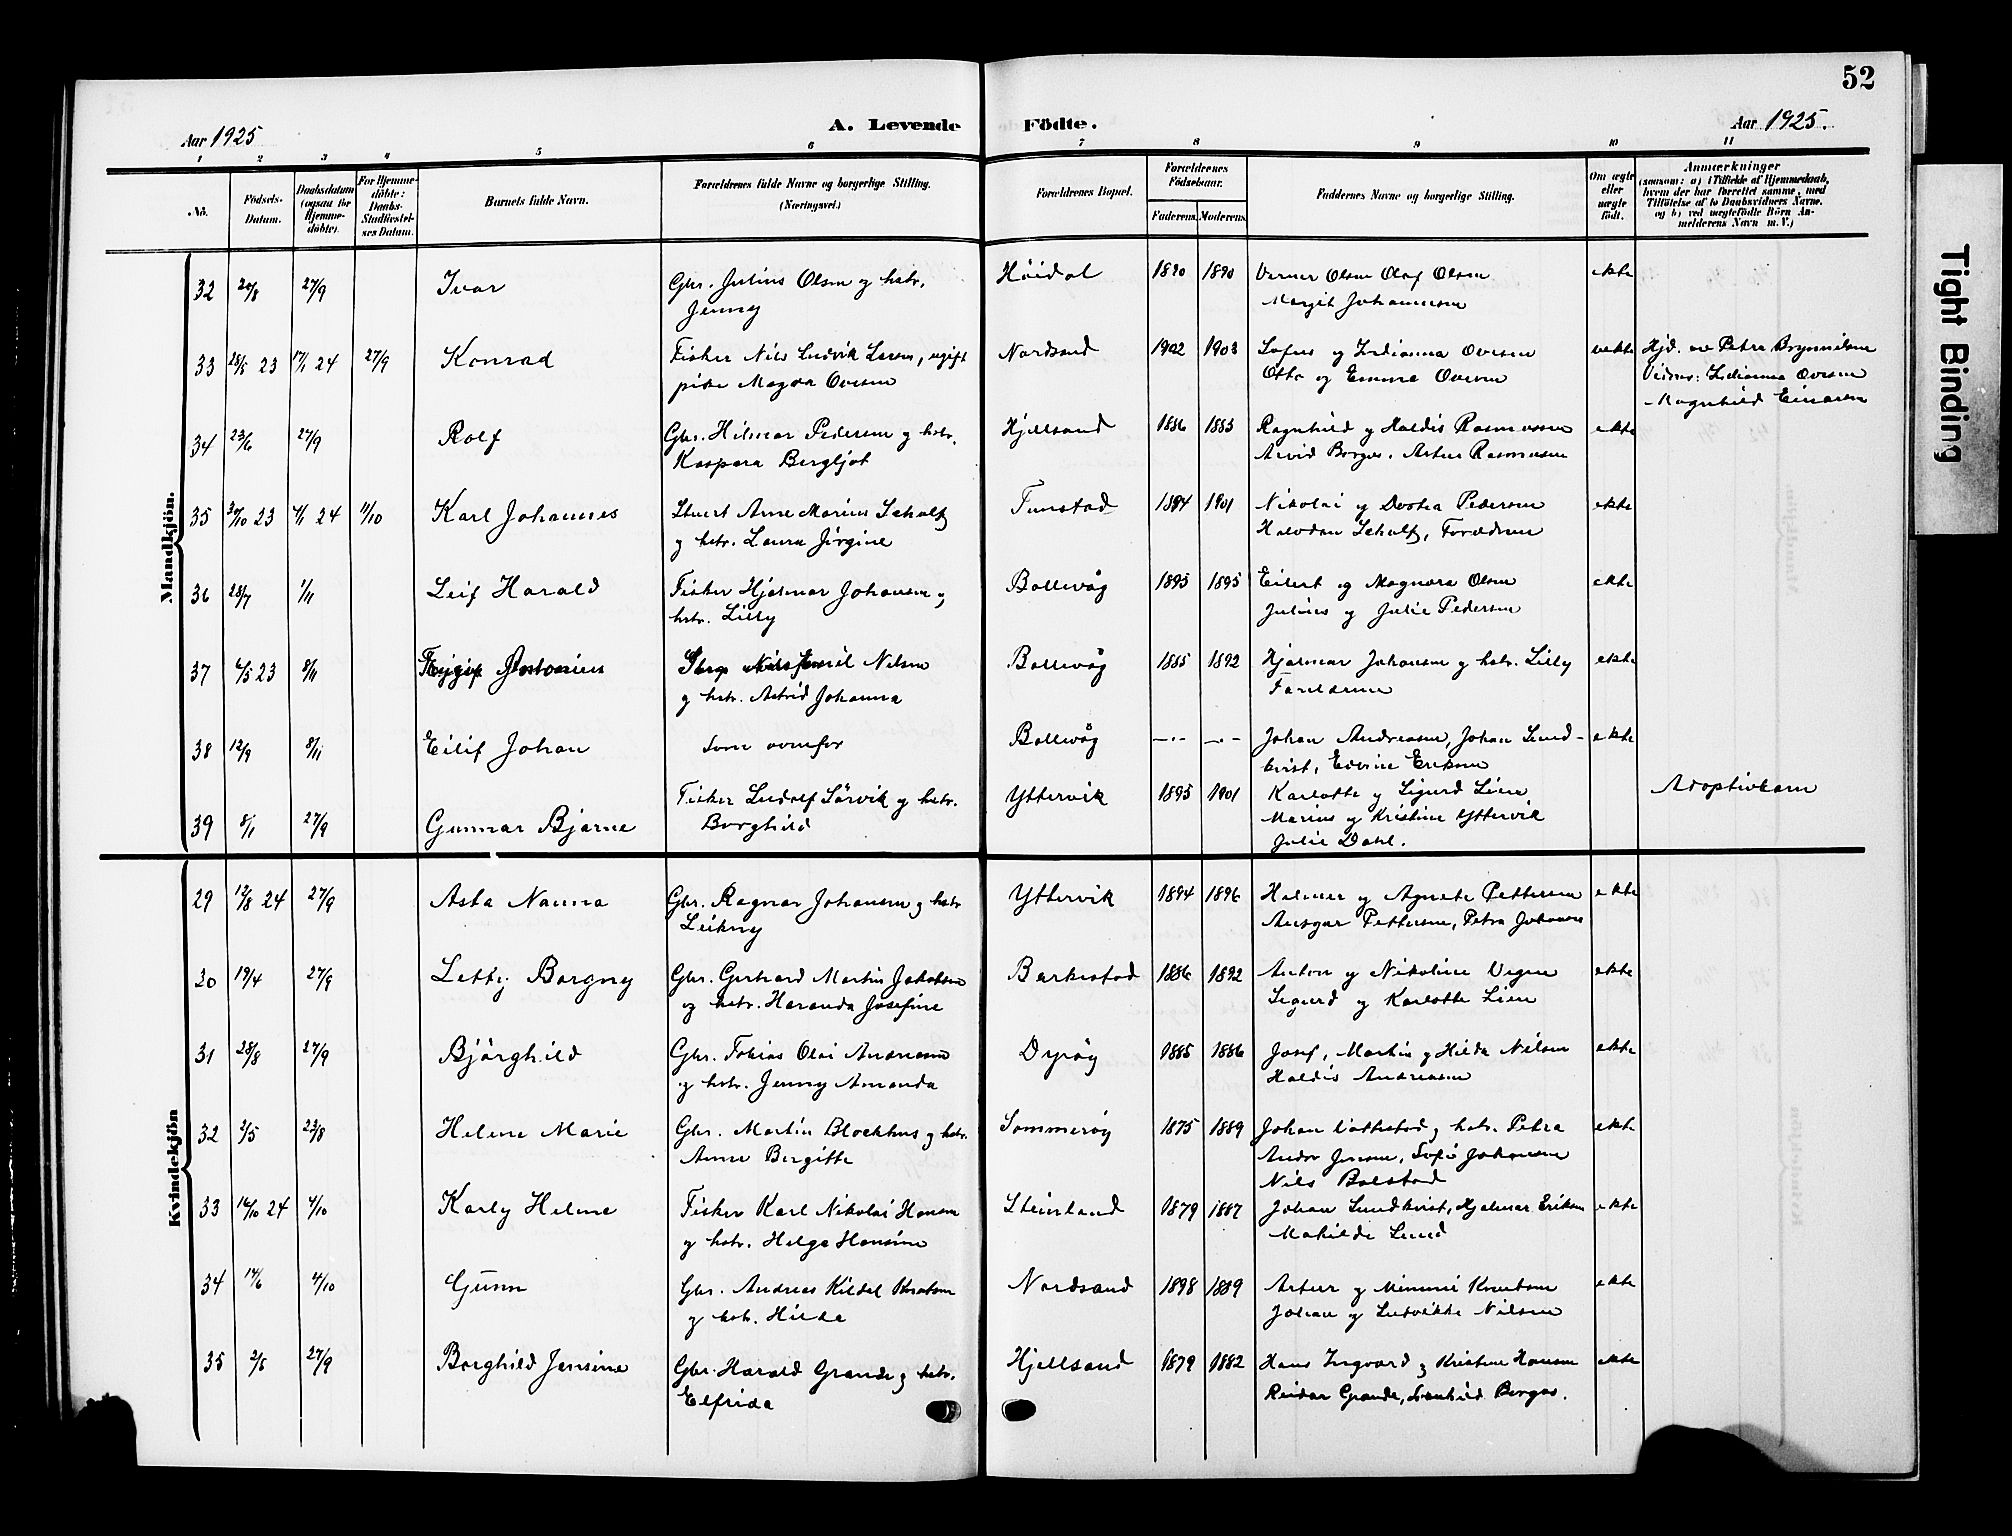 52
Aar 1925
A. Levende Födte.
Aar 1925.
1 2 3 4 5 6 7 8 9 10 11
No.
Födsels-
Datum.
Daabsdatum
(ogsaa for
Hjemme-
döbte).
For Hjemme-
döbte:
Daabs-
Stadfæstel-
ses Datum.
Barnets fulde Navn.
Forældrenes fulde Navne og borgerlige Stilling.
(Næringsvei.)
Forældrenes Bopæl.
Forældrenes
Födselsaar.
Faderens. Moderens.
Faddernes Navne og borgerlige Stilling.
Om ægte
eller
uægte
födt.
Anmærkninger
(saasom: a) i Tilfælde af Hjemmedaab,
hvem der har forrettet samme, med
Tilföielse af to Daabsvidners Navne,
og b) ved uægtefödte Börn An-
melderens Navn m.V.)
Mandkjön.
32 20/8 27/9 Ivar Gbr. Julius Olsen og hstr. Höidal 1890 1890 Verner Olsen Olaf Olsen ekte
Jenny Margit Johannesen
33 28/5 23 17/1 24 27/9 Konrad Fisker Nils Ludvik Larsen, ugift Nordsand 1902 1903 Sofus og Indianna Ovesen uekte Hjd. av Petra Brynnilsen
pike Magda Ovesen Otto og Emma Ovesen Vidner: Indianna Ovesen
Magnhild Einarsen
34 23/6 27/9 Rolf Gbr. Hilmar Pedersen og hstr. Hjellsand 1886 1885 Ragnhild og Haldis Rasmussen ekte
Kaspara Bergljot Arvid Borgos. Artur Rasmussen
35 30/10 23 4/1 24 11/10 Karl Johannes Stuert Arne Marius Schulz Tunstad 1894 1901 Nikolai og Dortea Pedersen ekte
og hstr. Laura Jörgine Halvdan Schulz, Foreldrene
36 28/7 1/11 Leif Harald Fisker Hjalmar Johansen og Ballevåg 1895 1895 Eilert og Magnora Olsen ekte
hstr. Lilly Julius og Julie Pedersen
37 6/5 23 8/11 Antonius Nilsen Ballevåg 1885 1892 Hjalmar Johansen og hstr. Lilly ekte
og hstr. Astrid Johanna Foreldrene
38 12/9 8/11 Eilif Johan Som ovenfor Ballevåg —"— —"— Johan Andreasen, Johan Lund- ekte
kvist, Edvine Eriksen
39 8/1 27/9 Gunnar Bjarne Fisker Ludolf Sörvik og hstr. Yttervik 1895 1901 Karlotte og Sigurd Lien Adoptivbarn
Borghild Marius og Kristine Yttervik
Julie Dahl.
Kvindekjön
29 12/8 24 27/9 Asta Nanna Gbr. Ragnar Johansen og hstr Yttervik 1894 1896 Helmer og Agnete Pettersen ekte
Leikny Ansgar Pettersen, Petra Johansen
30 19/4 27/9 Letty Borgny Gbr. Gerhard Martin Jakobsen Barkestad 1886 1892 Anton og Nikoline Vigen ekte
og hstr. Haranda Josefine Sigurd og Karlotte Lien
31 28/8 27/9 Björghild Gbr. Tobias Olai Andreasen Dyröy 1885 1886 Josef, Martin og Hilda Nilsen ekte
og hstr. Jenny Amanda Haldis Andreasen
32 2/5 23/8 Helene Marie Gbr. Martin Blockhus og hstr. Sommeröy 1875 1889 Johan Vottestad og hstr. Petra ekte
Anne Bergitte Andor Jensen, Sofie Johansen
Nils Bolstad
33 16/10 24 4/10 Karly Helene Fisker Karl Nikolai Hansen Steinland 1879 1887 Johan Lundkvist, Hjalmar Eriksen ekte
og hstr. Helga Hansine Mathilde Lund
34 14/6 4/10 Gunn Gbr. Andreas Kildal Knutsen Nordsand 1898 1889 Artur og Mimmi Knutsen ekte
og hstr. Hilda Johan og Ludvikke Nilsen
35 2/5 27/9 Borghild Jensine Gbr. Harald Grande og hstr. Hjellsand 1879 1882 Hans Ingvard og Kristine Hansen ekte
Elfrida Reidar Grande, Borgos.
Tight Binding